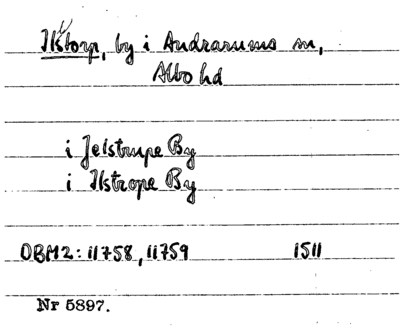 Ilstorp, by i Andrarums sn,
Albo hd
i Jelstrupe By
i Ilstrope By
DBM2: 11758, 11759 1511
Nr 5897.